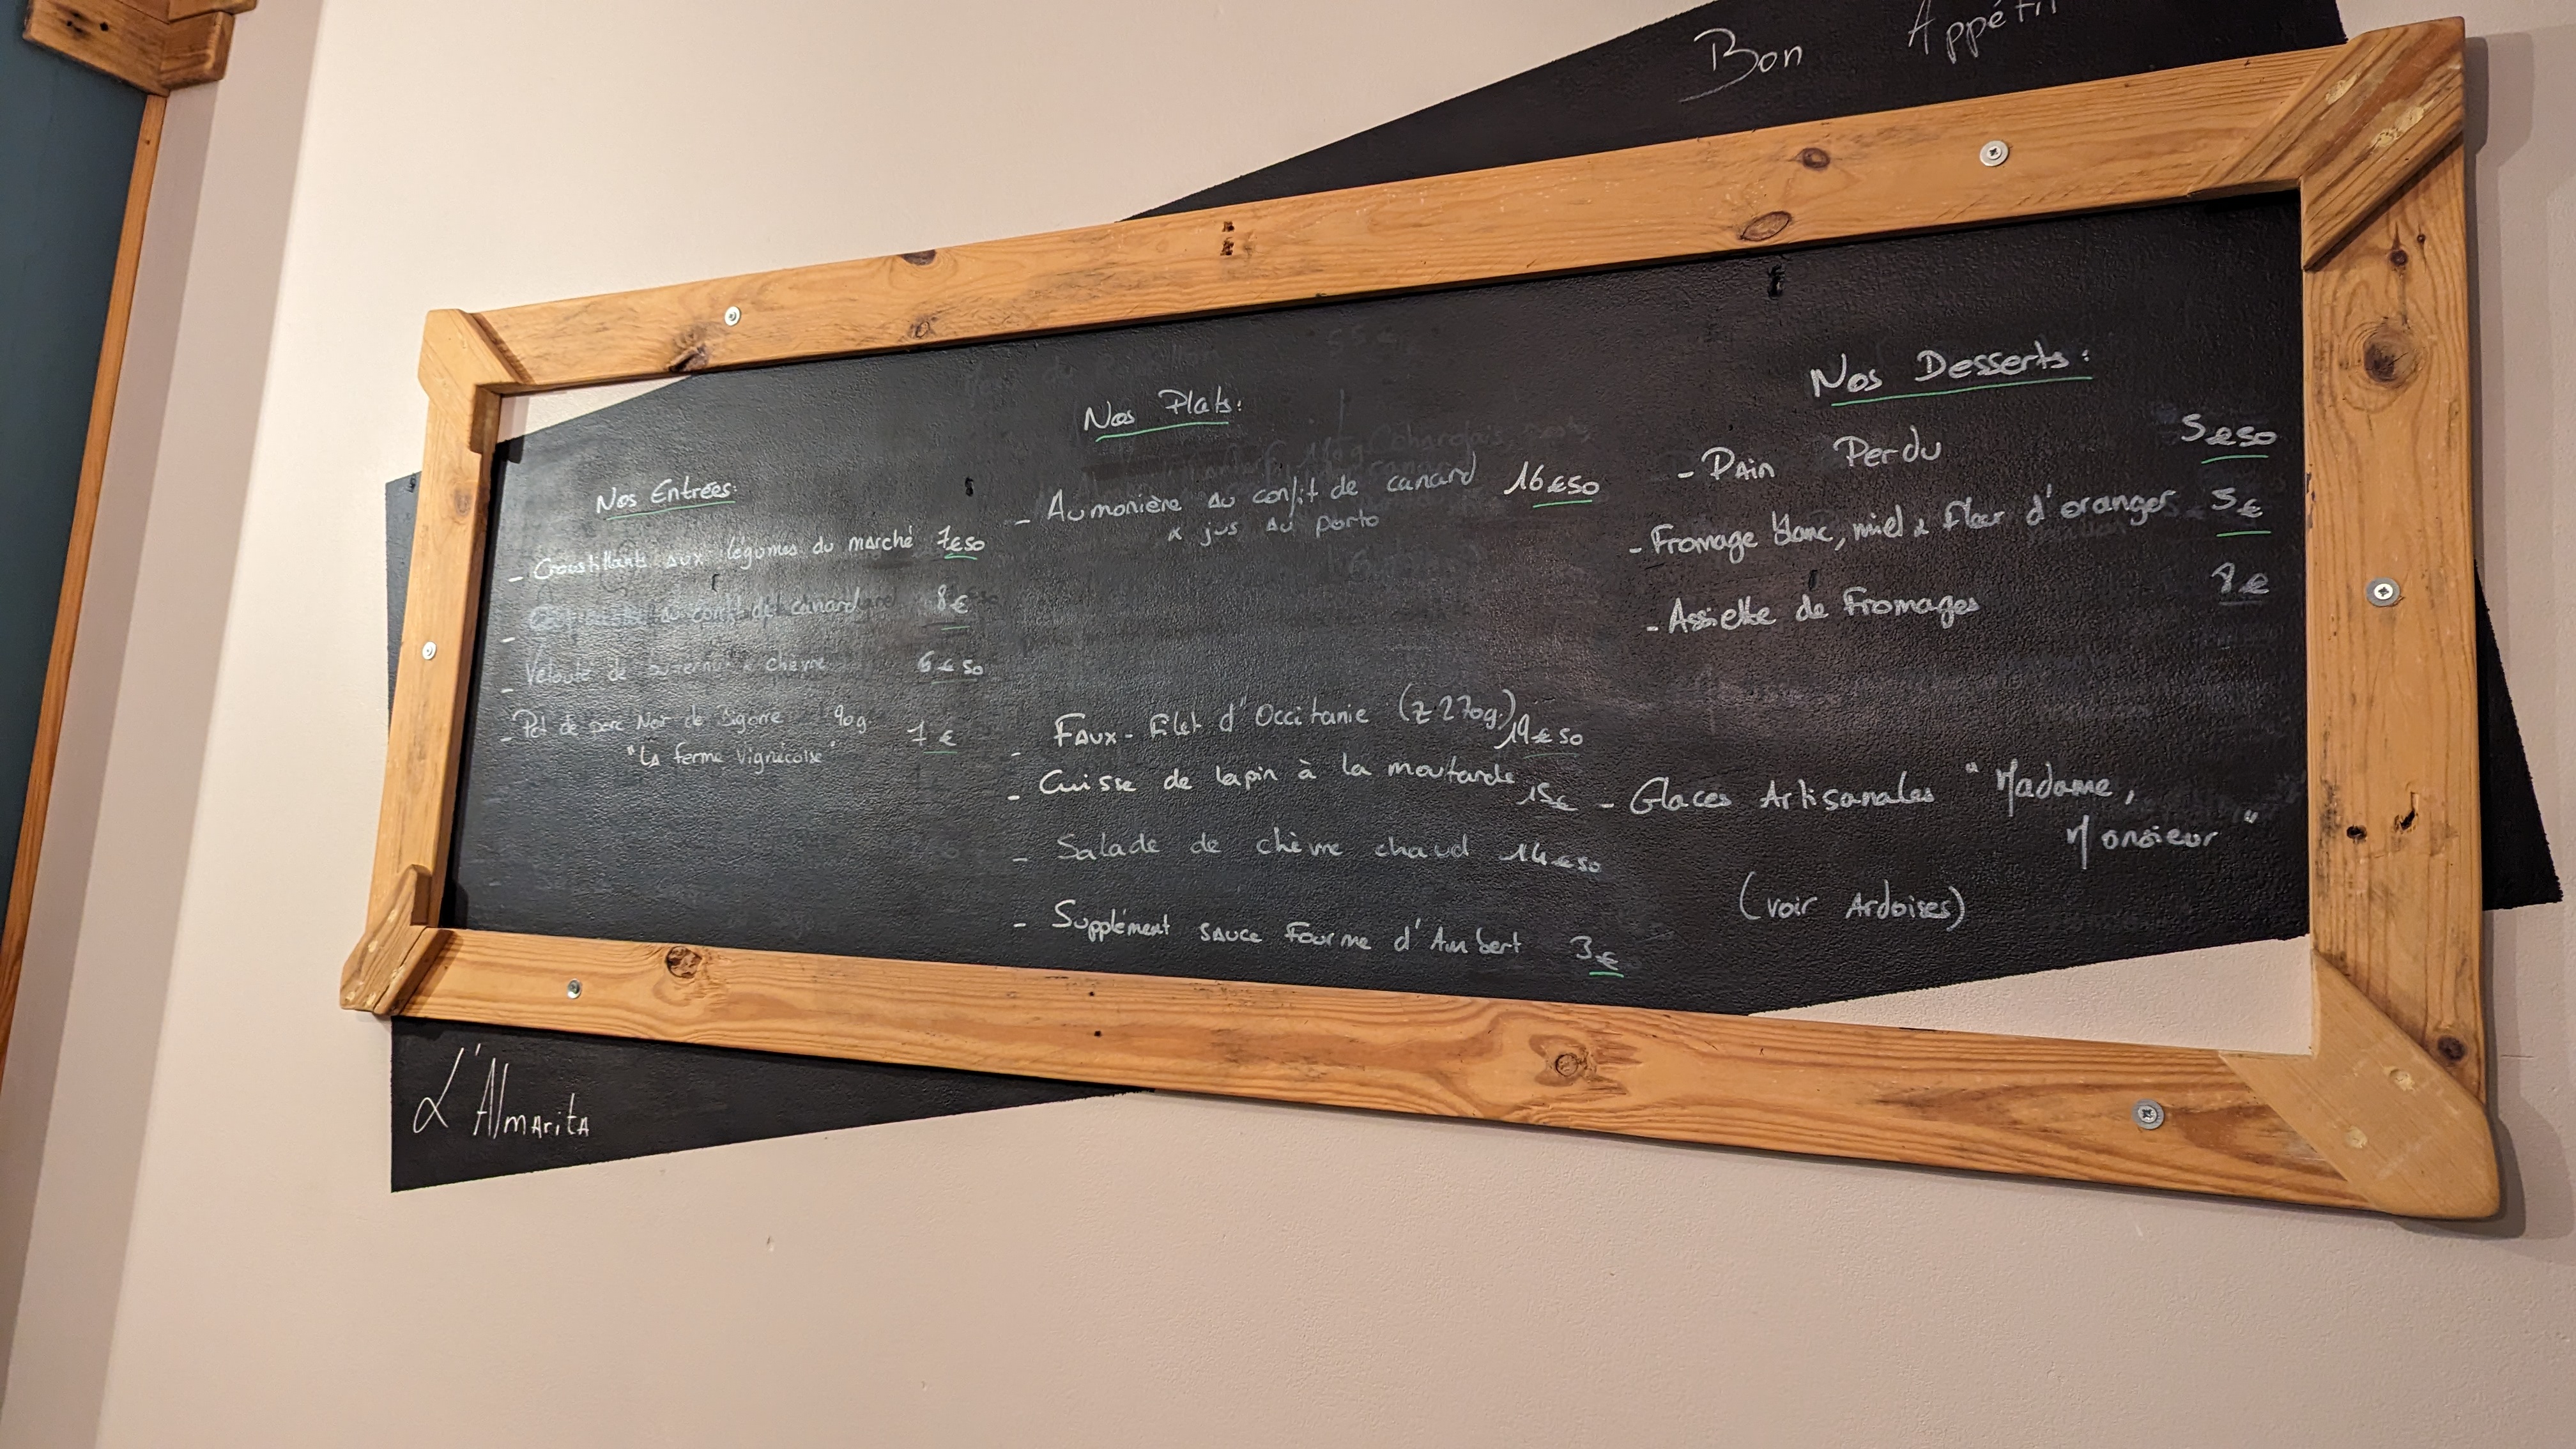 Bon Appétit
Nos Entrées:
- Croustillants aux légumes du marché 7€50
- au confit de canard 8€
- Velouté de butternut & chèvre 6€50
- Pot de porc Noir de Bigorre 90g 7€
"La ferme Vignecoise"
Nos Plats:
- Aumonière au confit de canard 16€50
& jus au porto
- Faux-Filet d'Occitanie (± 270g) 19€50
- Cuisse de lapin à la moutarde 15€
- Salade de chèvre chaud 14€50
- Supplément sauce Fourme d'Ambert 3€
Nos Desserts:
- Pain Perdu 5€50
- Fromage blanc, miel & fleur d'oranges 5€
- Assiette de Fromages 8€
- Glaces Artisanales "Madame,
Monsieur"
(voir Ardoises)
L'Almarita